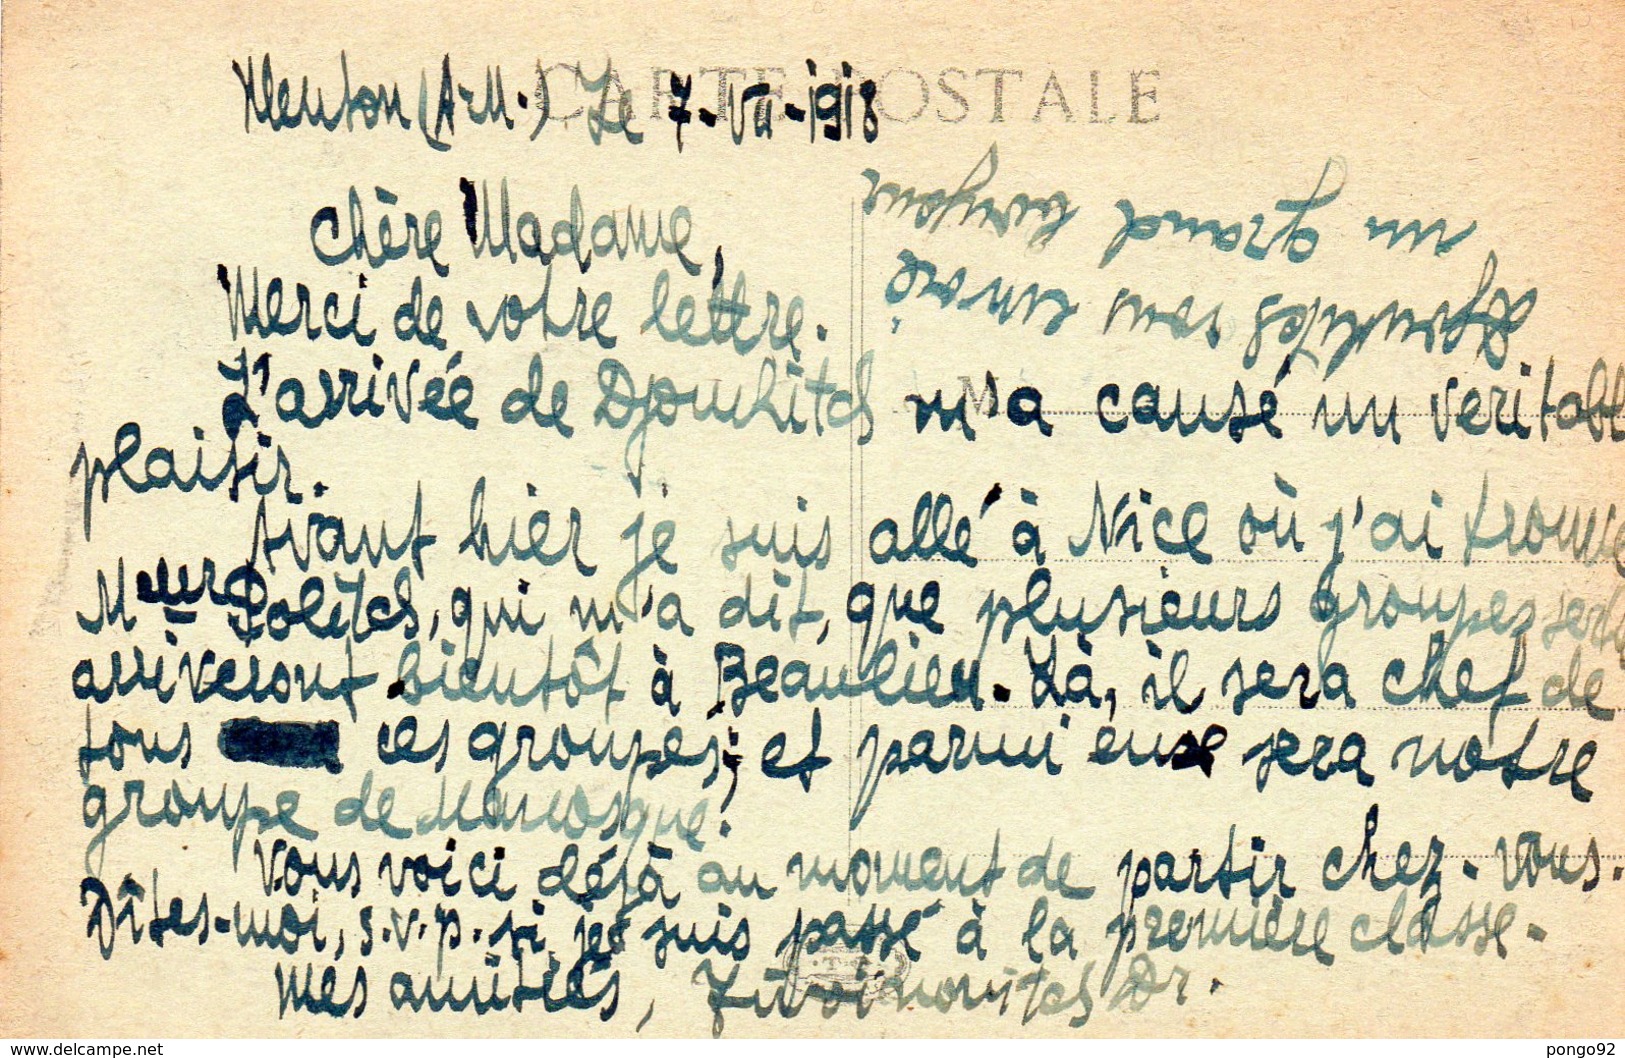 CARTE POSTALE
Menton (A-M.) Le 7-VII-1918
Chère Madame,
Merci de votre lettre.
L'arrivée de Djouhitch m'a causé un veritabl
plaisir.
Avant hier je suis allé à Nice où j'ai trouvé
Meur Politch, qui m'a dit, que plusieurs groupes
arriveront bientôt à Beaulieu. Là, il sera chef de
tous ces groupes; et parmi eux sera notre
groupe de Manosque.
Vous voici déjà au moment de partir chez-vous.
Dîtes-moi, s.v.p. si je suis passé à la première classe.
Mes amitiés, Dr.
vous envoie
un grand bonjour
www.delcampe.net
pongo92